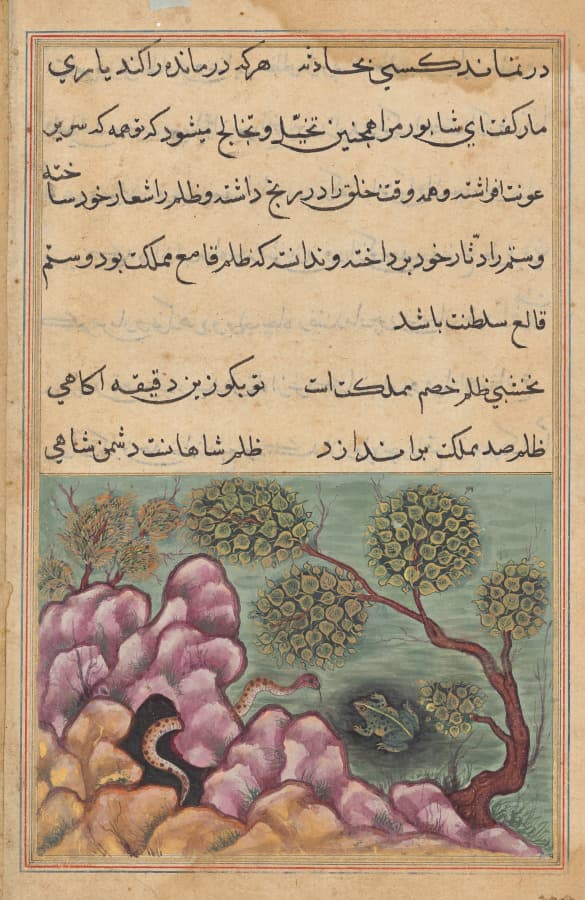 در نماند کسی بحادثه هر که درمانده را کند یاری
مار گفت ای شاپور مرا همچنین تخیل و تخالج میشود که تو همه که سریر
عونت افراشته و همه وقت خلق را در رنج داشته و ظلم را شعار خود ساخته
وستم را دثار خود برداخته و ندانسته که ظلم قامع مملکت بود و ستم
قالع سلطنت باشد
نخشبی ظلم خصم مملکت است تو بکو زین دقیقه اکاهی
ظلم صد مملکت براندازد ظلم شاهانست دشمن شاهی